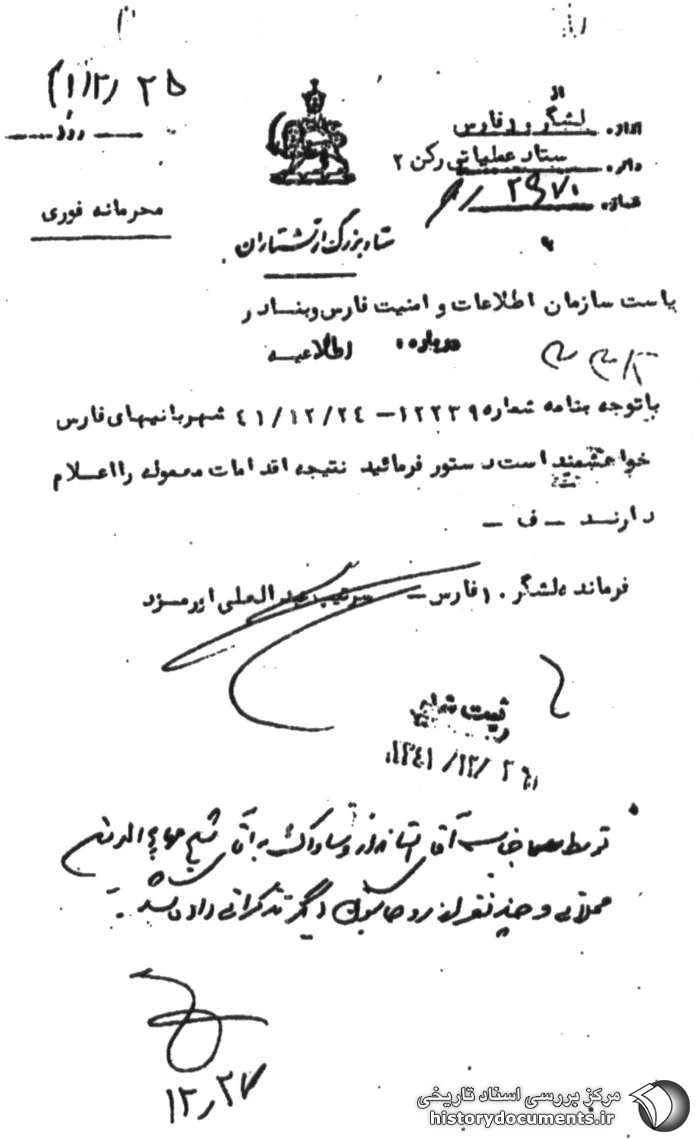 از
اداره لشگر ۱۰ فارس
دایره ستاد عملیاتی رکن ۲
شماره ۲۹۷۱۰
۲۵/۱۲/(۴۱)
روز
محرمانه فوری
ستاد بزرگ ارتشتاران
یاست سازمان اطلاعات و امنیت فارس و بنادر
درباره: اطلاعیه
باتوجه بنامه شماره ۱۲۲۳۹ – ۴۱/۱۲/۲۴ شهربانیهای فارس
خواهشمند است دستور فرمائید نتیجه اقدامات معموله را اعلام
دارند – ف –
فرمانده لشگر ۱۰ فارس – سرتیپ
ثبت شد
۱۳۴۱/۱۲/۲۹
توسط آقای استاندار و ساواک به آقای شیخ بهاءالدین
محلاتی و چند نفر از روحانیون دیگر تذکراتی داده شد.
۱۲/۲۷
مرکز بررسی اسناد تاریخی
historydocuments.ir